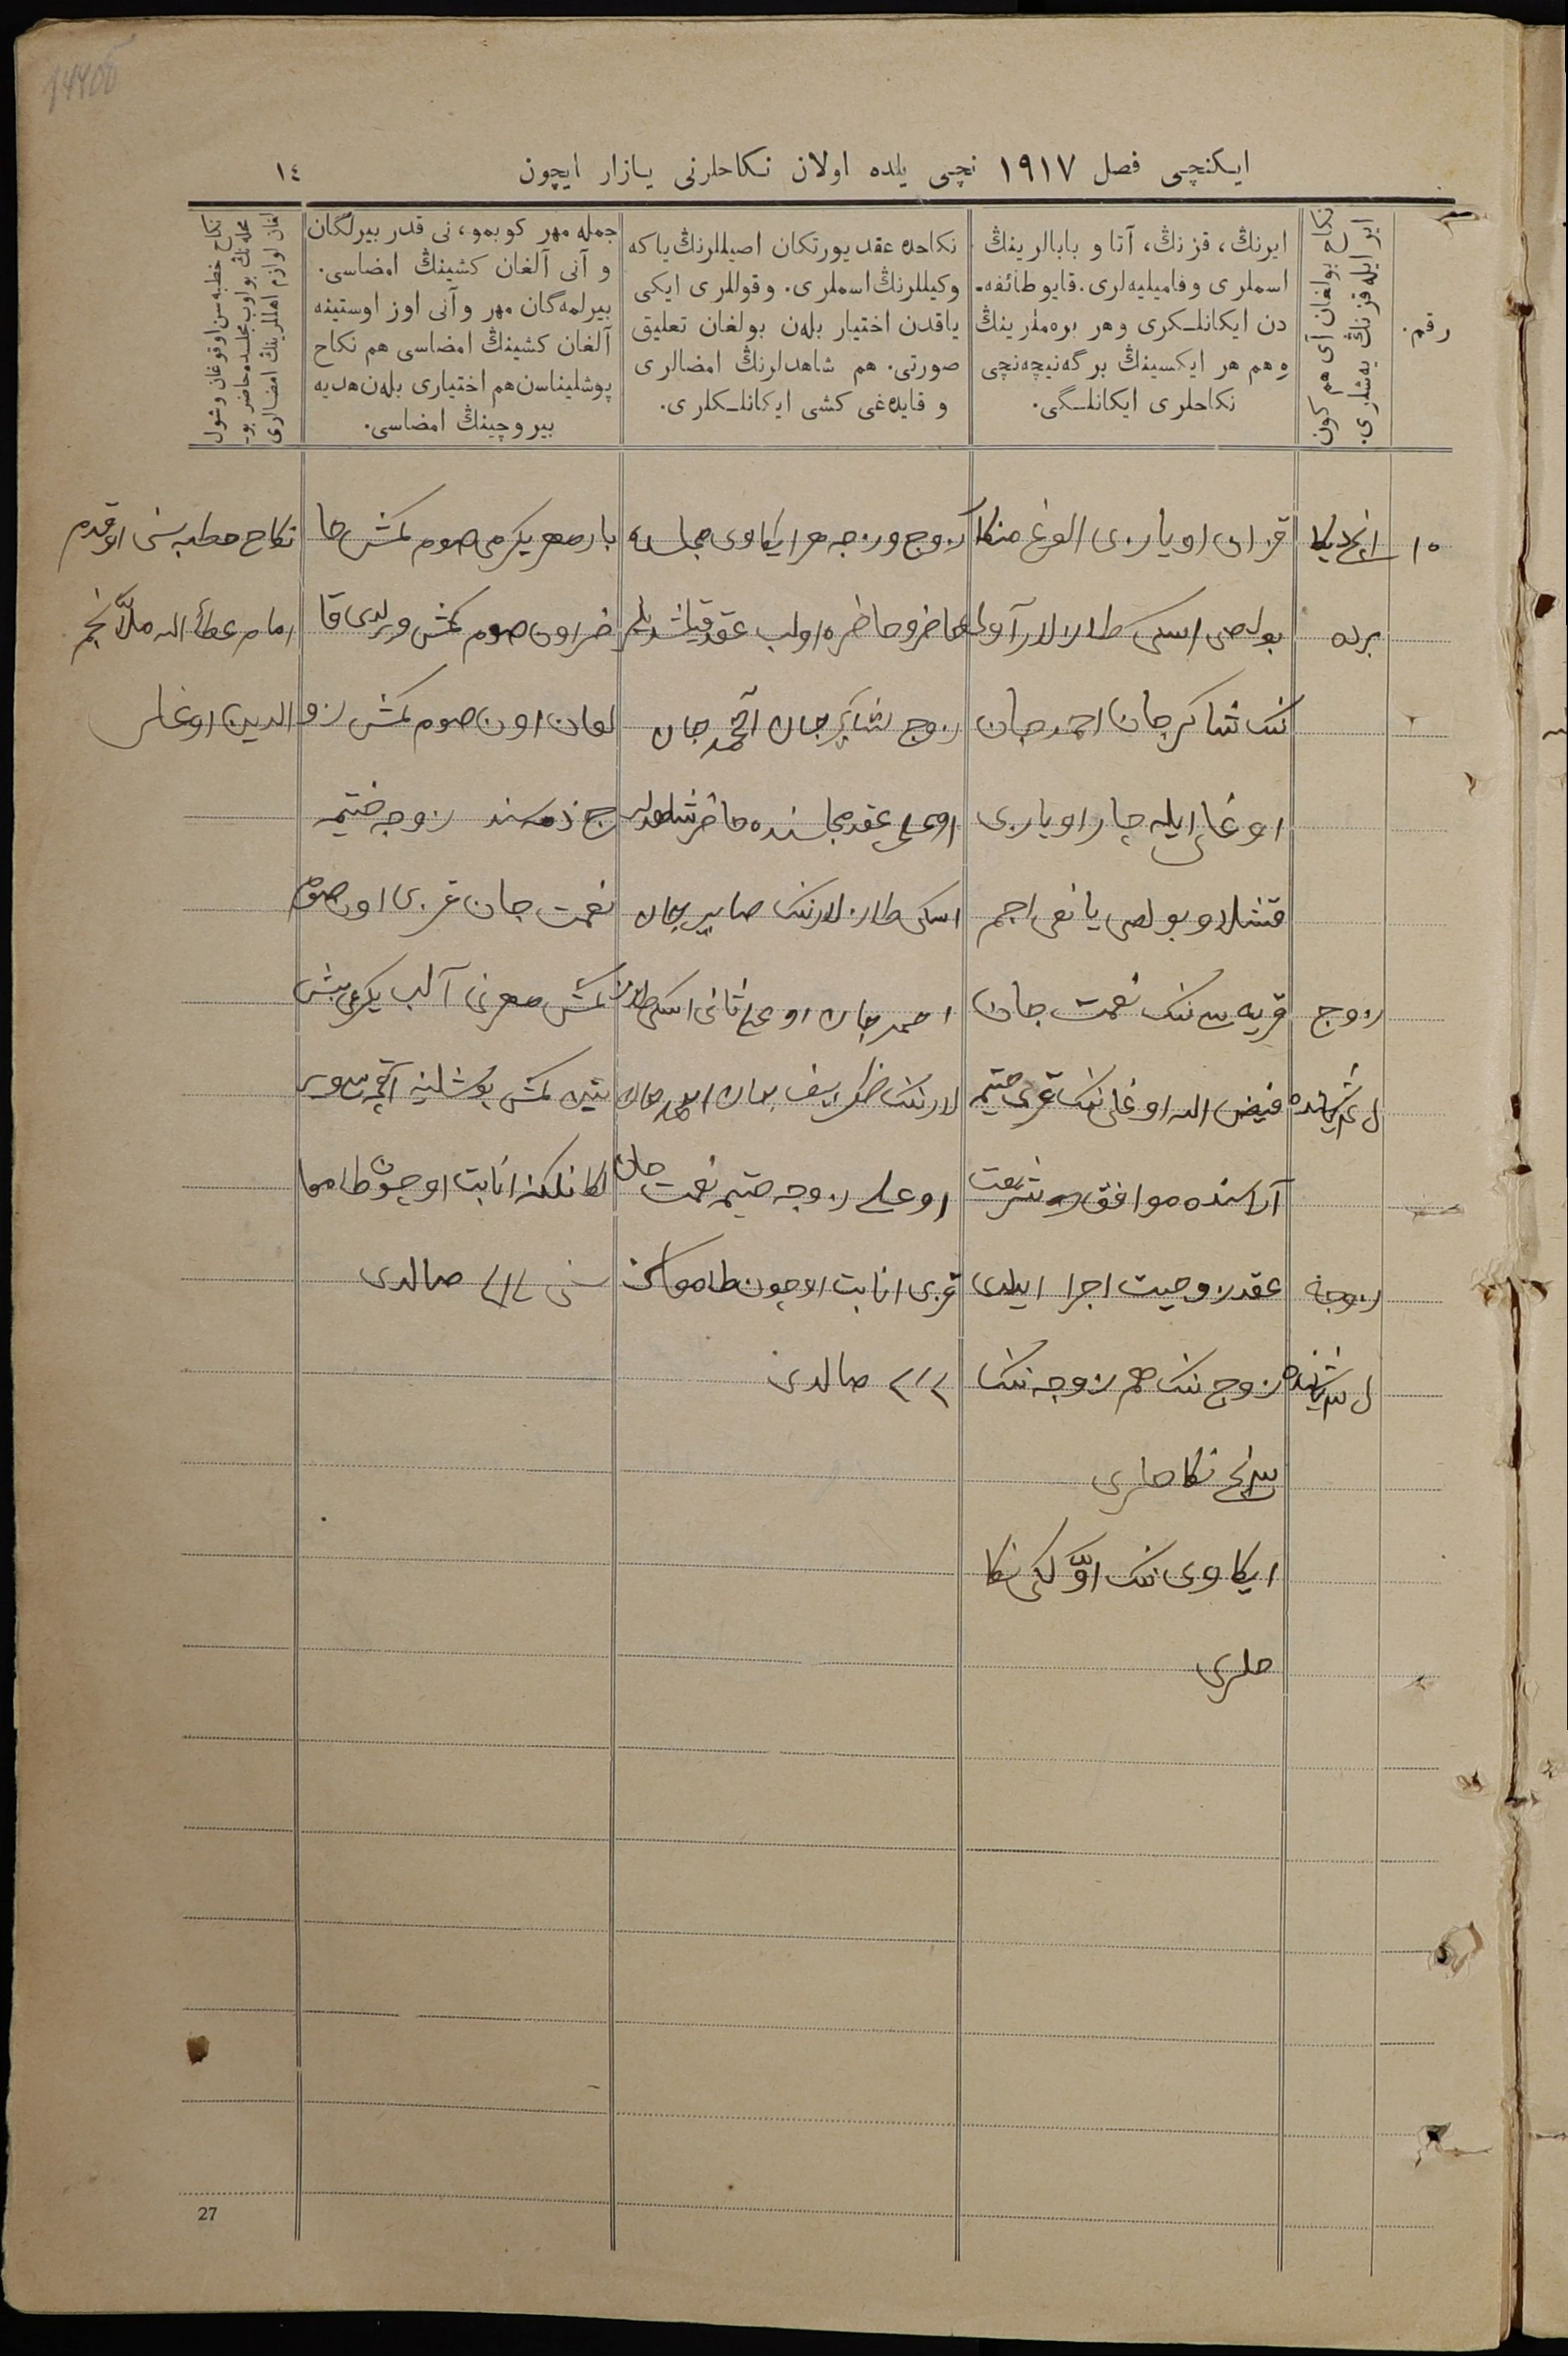 ایکنچی فصل ١٩١٧ نچی یلده اولان نکاحلرنی یازار ایچون
١٤
رقم.
نکاح بولغان آی هم کون
ایر ایله قزنڭ یه‌شلری.
ایرنڭ، قزنڭ، آتا و بابالرینڭ
اسملری و فامیلیه‌لری. قایو طائفه‌ـ
دن ایکانلـکری وهر بره‌ملرینڭ
وهم هر ایکسینڭ برگه‌نیچه‌نچی
نکاحلری ایکانلـگی.
نکاحده عقد یورتکان اصیللرنڭ یاکه
وکیللرنڭ اسملری. وقوللری ایکی
یاقدن اختیار بله‌ن بولغان تعلیق
صورتی. هم شاهدلرنڭ امضالری
و قایده‌غی کشی ایکانلـکلری.
جمله مهر کوبمو، نی قدر بیرلگان
و آنی آلغان کشینڭ امضاسی.
بیرلمه‌گان مهر وآنی اوز اوستینه
آلغان کشینڭ امضاسی هم نکاح
پوشلیناسن هم اختیاری بله‌ن هدیه
بیروچینڭ امضاسی.
نکاح خطبه‌سن اوقوغان وشول
محله‌نڭ بولوب مجلسده حاضر بو
لغان لوازم اهللرینڭ امضالری
١٠
برده
زوج
زوجه
قزان اویازی الوغ منکار
بولصی اسکی طازلار آولی
ننک شاکرجان احمدجان
اوغلی ایله چار اویازی
قشلاو بولصی یانغی اجم
قریه سی ننک نعمت جان
فیض الله اوغلی ننک قزی ختیمه
آراسنده موافق شریعت
عقد زوجیت اجرا ایلدی
زوج ننک هم زوجه ننک
نکاحلری
ایکاوی ننک اولکی نکا
حلری
زوج وزوجه هر ایکاوی مجلسده
حاضر وحاضره اولب عقد قیلشدیلر
زوج شاکرجان احمدجان
اوغلی عقد مجلسنده حاضر شاهدلر
اسکی طازلارننک صابرجان
احمدجان اوغلی ثانی اسکی طاز
لارننک ظریف جان احمدجان
اوغلی زوجه ختیمه نعمت جان
قزی انابت اوچون طامغاسن
صالدی
بار مهر یکرمی صوم کمش حا
ضر اون صوم کمش ویرلدی قا
لغان اون صوم کمش زو
ج ذمه سنده زوجه ختیمه
نعمت جان قزی اون صوم
کمش مهرنی آلب یکرمی بیش
تین کمش پوشلینه آقچه سی ویر
کانلکنه انابت اوچون طامغا
سنی صالدی
نکاح خطبه سنی اوقدم
امام عطاء الله ملا نجم
الدین اوغلی
27